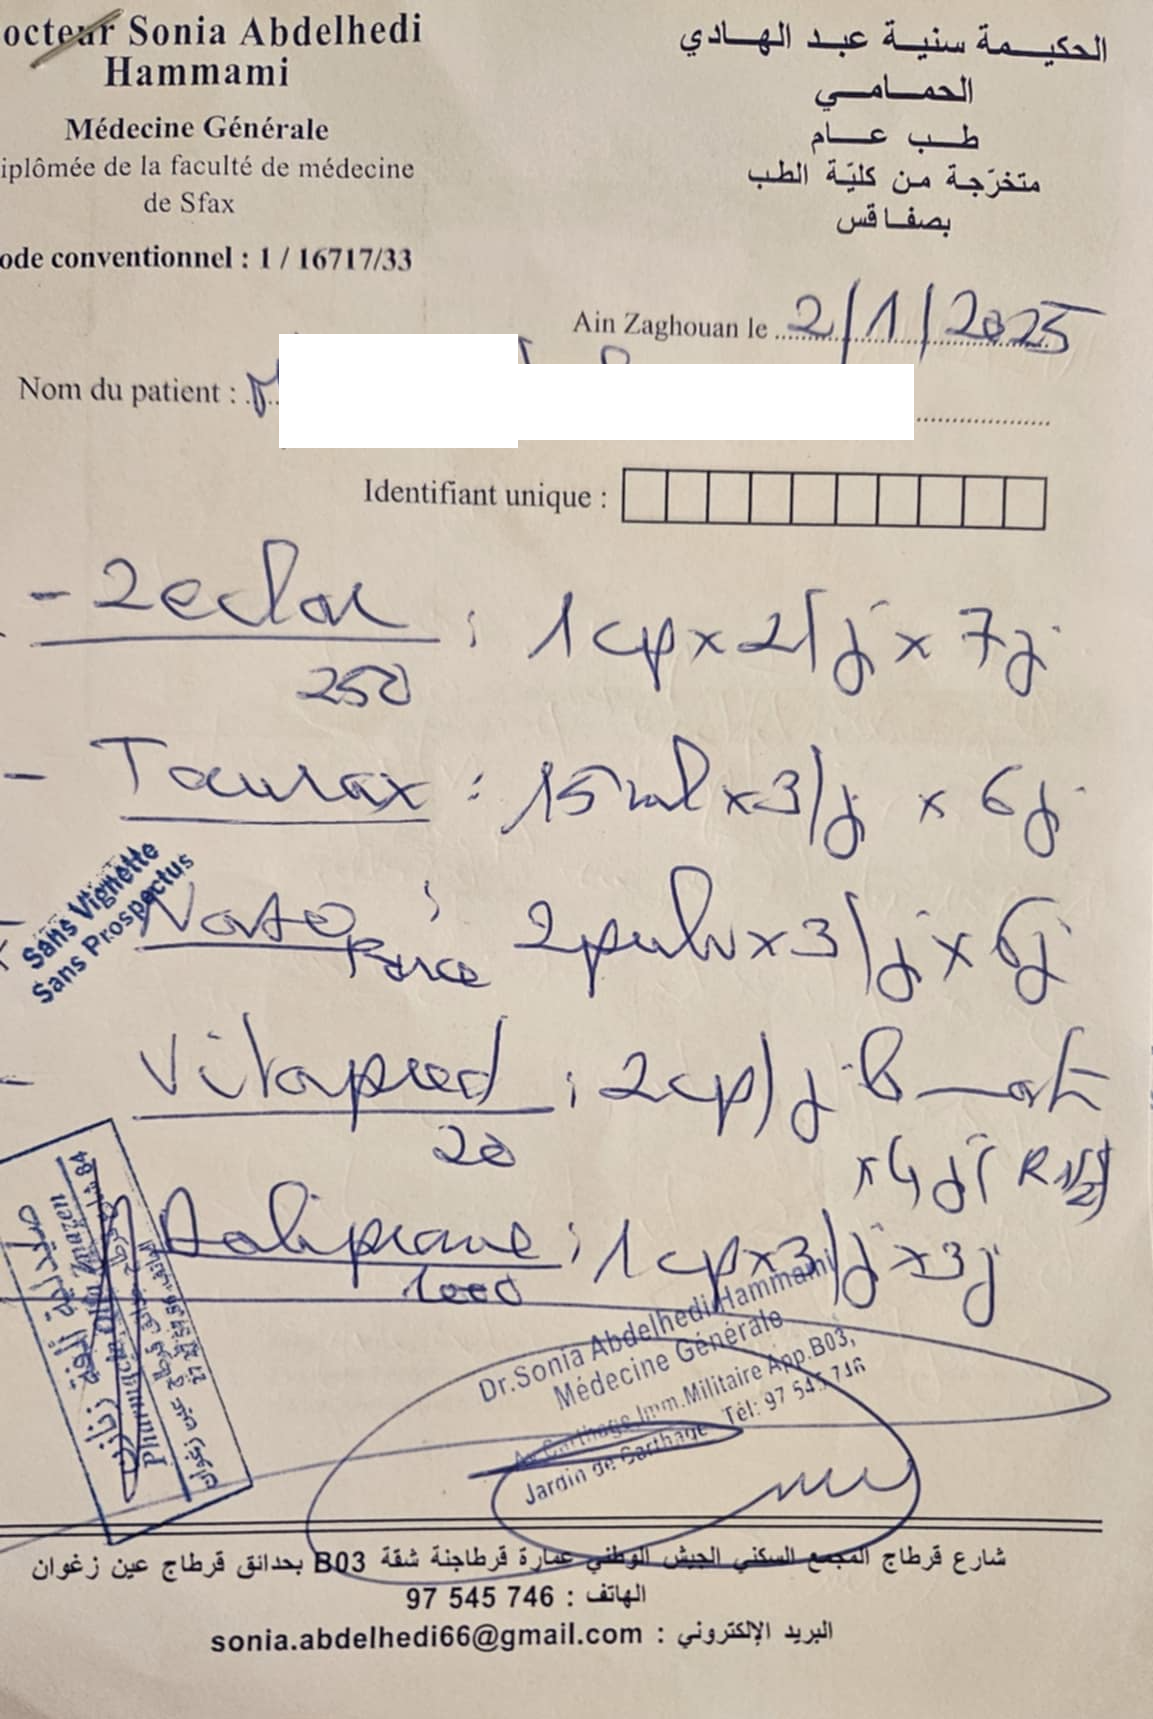 octeur Sonia Abdelhedi
Hammami
Médecine Générale
iplômée de la faculté de médecine
de Sfax
ode conventionnel : 1 / 16717/33
الحكيمة سنية عبد الهادي
الحمامي
طب عام
متخرّجة من كليّة الطب
بصفاقس
Ain Zaghouan le 2/1/2025
Nom du patient :
Identifiant unique :
- Zeclar : 1cp x 2/j x 7j
250
- Tourax : 15ml x 3/j x 6j
Sans Vignette
Sans Prospectus
Naso : 2pulv x 3/j x 6j
Force
- Vitapred : 2cp/j le mat
20
x 4j (R 1/2)
Doliprane : 1cp x 3/j x 3j
1000
Dr.Sonia Abdelhedi Hammami
Médecine Générale
Av Carthage Imm.Militaire App.B03,
Jardin de Carthage Tél: 97 545 746
صيدلية ألفة
Pharmacie
شارع قرطاج المجمع السكني الجيش الوطني عمارة قرطاجنة شقة B03 بحدائق قرطاج عين زغوان
الهاتف : 97 545 746
البريد الإلكتروني : sonia.abdelhedi66@gmail.com